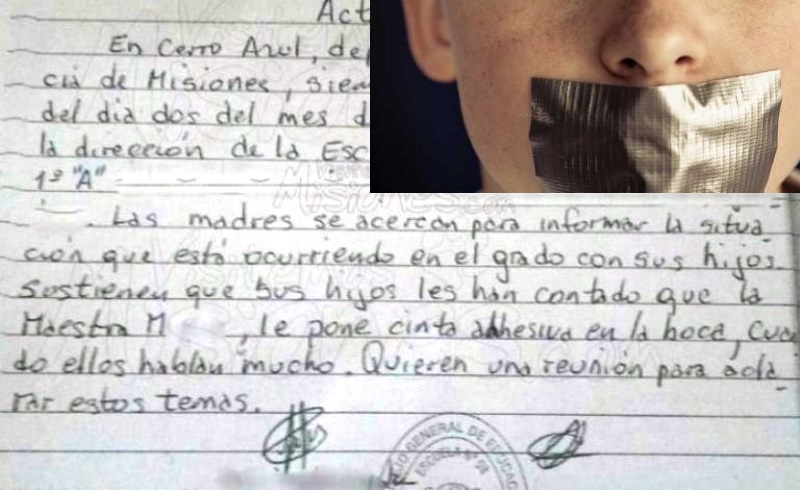 Act
En Cerro Azul, de
cia de Misiones, sien
del dia dos del mes d
la dirección de la Esc
1º "A"
Las madres se acercan para informar la situa
ción que está ocurriendo en el grado con sus hijos.
Sostienen que sus hijos les han contado que la
Maestra M , le pone cinta adhesiva en la boca, cuan
do ellos hablan mucho. Quieren una reunión para acla
rar estos temas.
GENERAL DE EDUCAC
ESCUELA Nº
Misiones.com